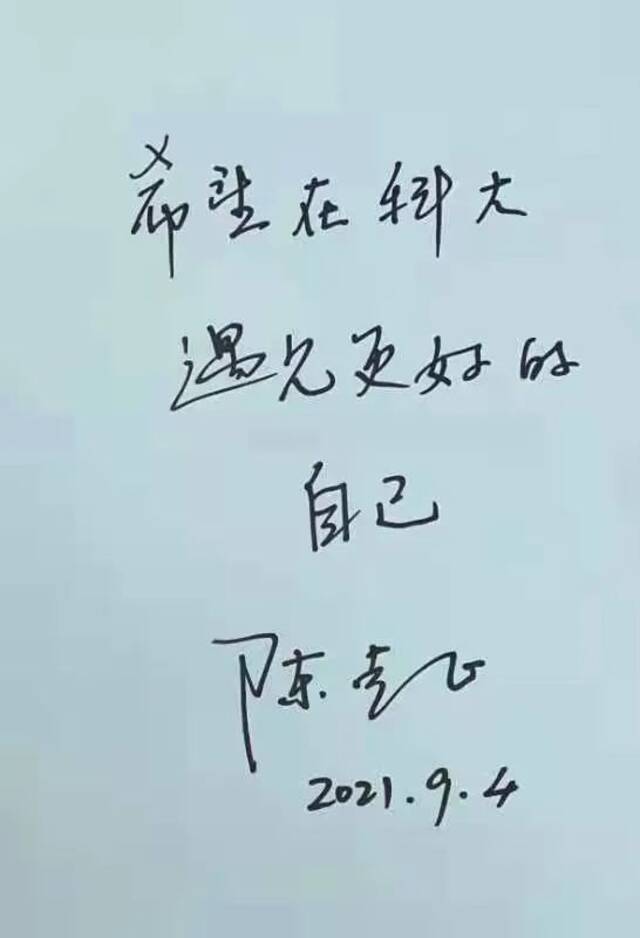 希望在科大
遇见更好的
自己
陈
2021.9.4